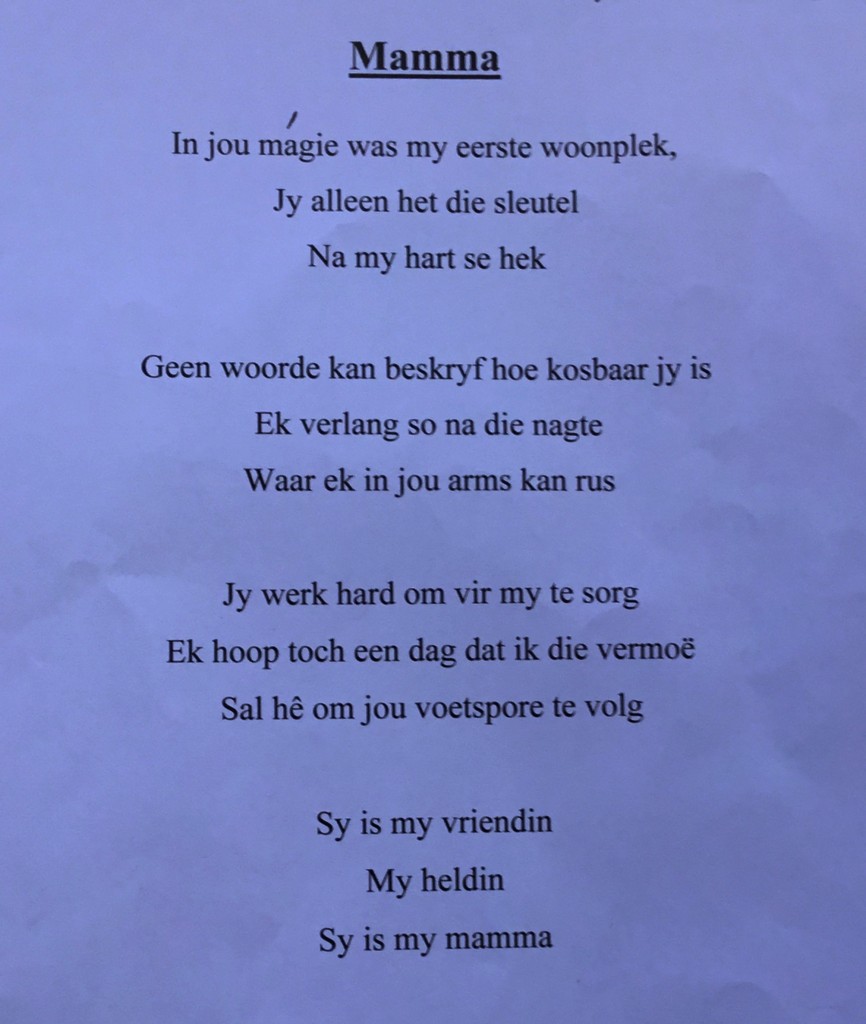 Mamma
In jou mágie was my eerste woonplek,
Jy alleen het die sleutel
Na my hart se hek
Geen woorde kan beskryf hoe kosbaar jy is
Ek verlang so na die nagte
Waar ek in jou arms kan rus
Jy werk hard om vir my te sorg
Ek hoop toch een dag dat ik die vermoë
Sal hê om jou voetspore te volg
Sy is my vriendin
My heldin
Sy is my mamma